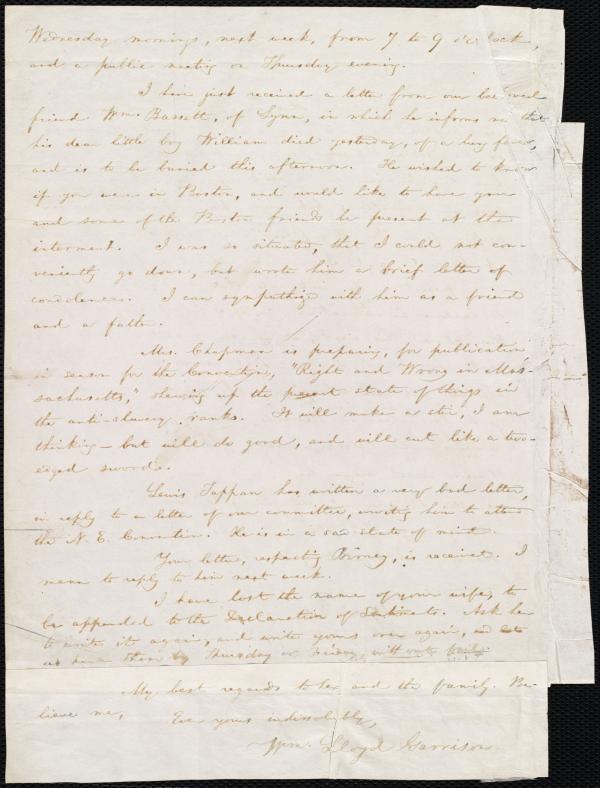 Wednesday mornings, next week, from 7 to 9 o'clock,
and a public meeting on Thursday evening.
I have just received a letter from our beloved
friend Wm. Bassett, of Lynn, in which he informs me that
his dear little boy William died yesterday, of a lung fever,
and is to be buried this afternoon. He wished to know
if you were in Boston, and would like to have you
and some of the Boston friends be present at the
interment. I was so situated, that I could not con-
veniently go down, but wrote him a brief letter of
condolence. I can sympathize with him as a friend
and a father.
Mrs. Chapman is preparing, for publication
in season for the Convention, "Right and Wrong in Mas-
sachusetts," shewing up the present state of things in
the anti-slavery ranks. It will make a stir, I am
thinking—but will do good, and will cut like a two-
edged sword.
Lewis Tappan has written a very bad letter,
in reply to a letter of our committee, inviting him to attend
the N. E. Convention. He is in a sad state of mind.
Your letter, respecting Birney, is received. I
mean to reply to him next week.
I have lost the name of your wife, to
be appended to the Declaration of Sentiments. Ask her
to write it again, and write yours over again, and let
us have them by Thursday or Friday, without fail.
My best regards to her and the family. Be-
lieve me, Ever yours indissolubly,
Wm. Lloyd Garrison.